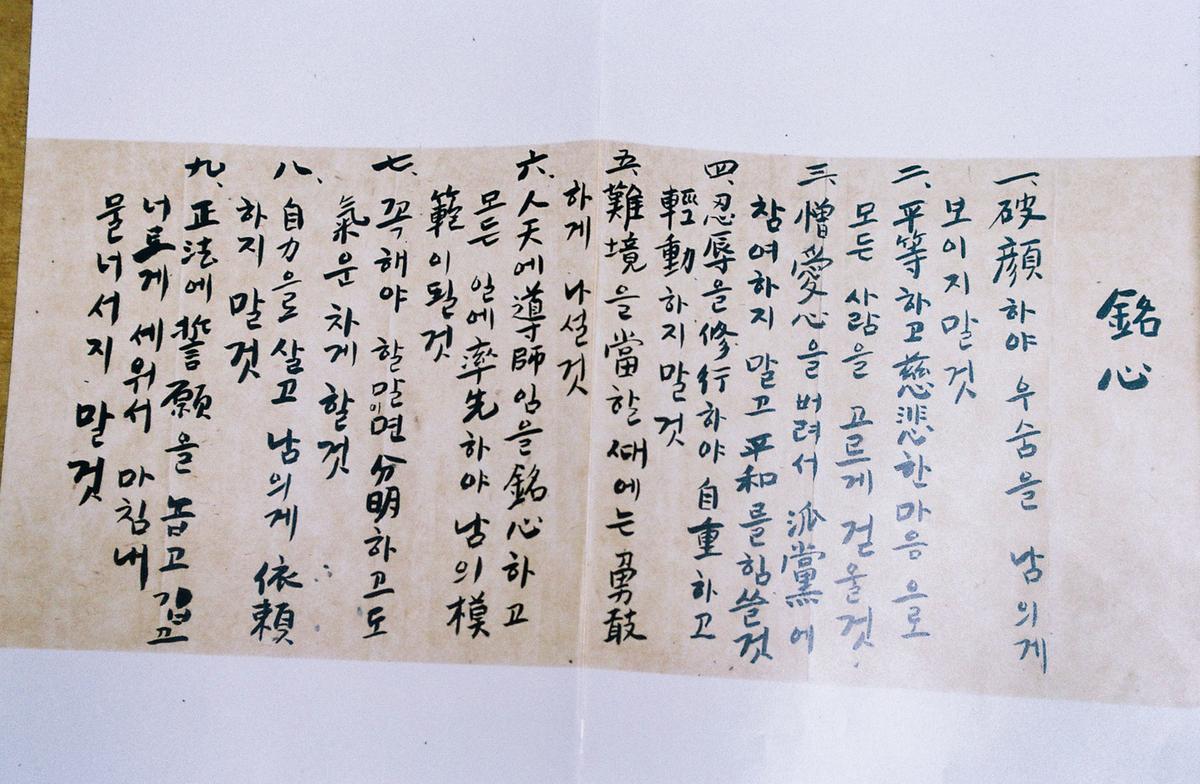 銘心
一、破顔하야 우숨을 남의게
보이지말것
二、平等하고 慈悲한마음으로
모든 사람을 고르게 건울것
三、憎愛心을버려서 派黨에
참여하지 말고 平和를힘쓸것
四、忍辱을修行하야 自重하고
輕動하지말것
五、難境을當할때에는勇敢
하게 나설것
六、人天에導師임을銘心하고
모든 일에率先하야 남의模
範이될것
七、꼭해야 할말이면分明하고도
氣운차게 할것
八、自力으로살고 남의게 依頼
하지 말것
九、正法에 誓願을 높고 깊고
너르게 세워서 마침내
물너서지 말것